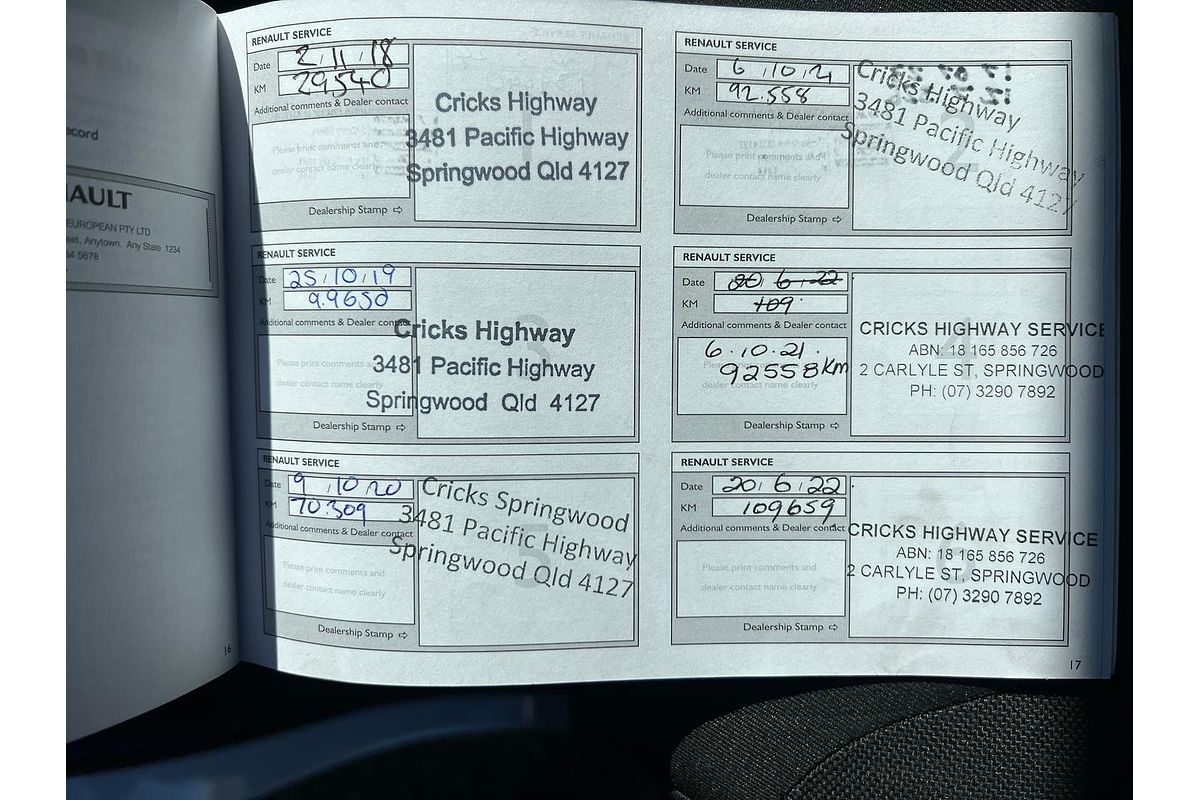 ecord
AULT
EUROPEAN PTY LTD
eet, Anytown. Any State 1234
34 5678
16
RENAULT SERVICE
Date 2/11/18
KM 29540
Additional comments & Dealer contact
Please print comments and
dealer contact name clearly
Dealership Stamp ⇨
Cricks Highway
3481 Pacific Highway
Springwood Qld 4127
RENAULT SERVICE
Date 25/10/19
KM 9.9650
Additional comments & Dealer contact
Please print comments and
dealer contact name clearly
Dealership Stamp ⇨
Cricks Highway
3481 Pacific Highway
Springwood Qld 4127
RENAULT SERVICE
Date 9/10/20
KM 70.309
Additional comments & Dealer contact
Please print comments and
dealer contact name clearly
Dealership Stamp ⇨
Cricks Springwood
3481 Pacific Highway
Springwood Qld 4127
RENAULT SERVICE
Date 6/10/21
KM 92.558
Additional comments & Dealer contact
Please print comments and
dealer contact name clearly
Dealership Stamp ⇨
Cricks Highway
3481 Pacific Highway
Springwood Qld 4127
RENAULT SERVICE
Date 20/6/22
KM 109
Additional comments & Dealer contact
6.10.21.
92558km
dealer contact name clearly
Dealership Stamp ⇨
CRICKS HIGHWAY SERVICE
ABN: 18 165 856 726
2 CARLYLE ST, SPRINGWOOD
PH: (07) 3290 7892
RENAULT SERVICE
Date 20/6/22
KM 109659
Additional comments & Dealer contact
Please print comments and
dealer contact name clearly
Dealership Stamp ⇨
CRICKS HIGHWAY SERVICE
ABN: 18 165 856 726
2 CARLYLE ST, SPRINGWOOD
PH: (07) 3290 7892
17